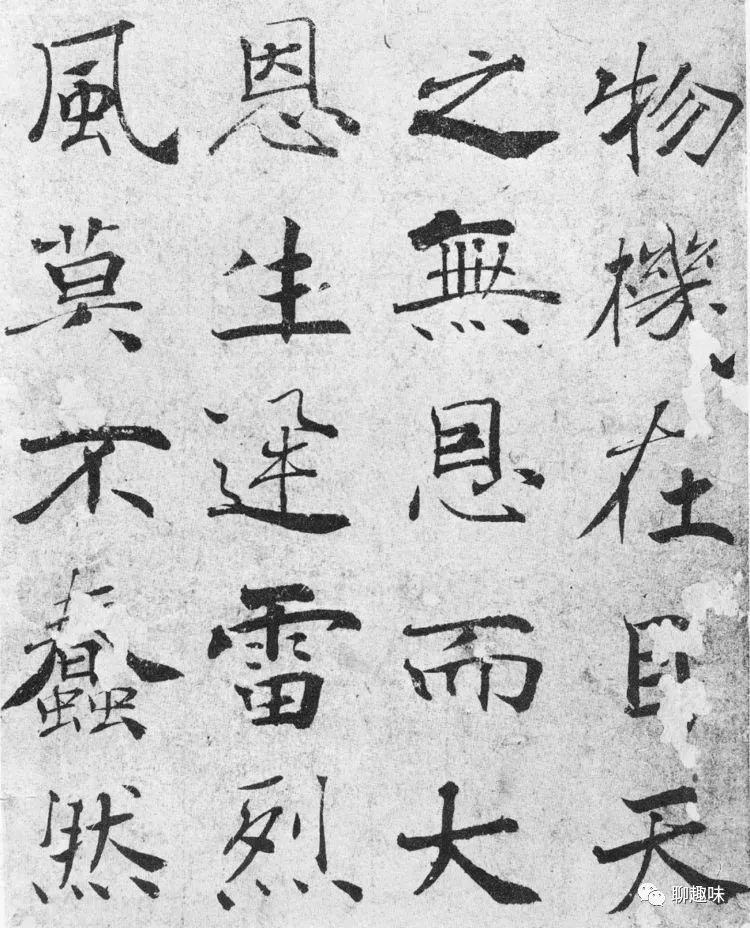 物機在目天
之無恩而大
恩生迅雷烈
風莫不蠢然
聊趣味